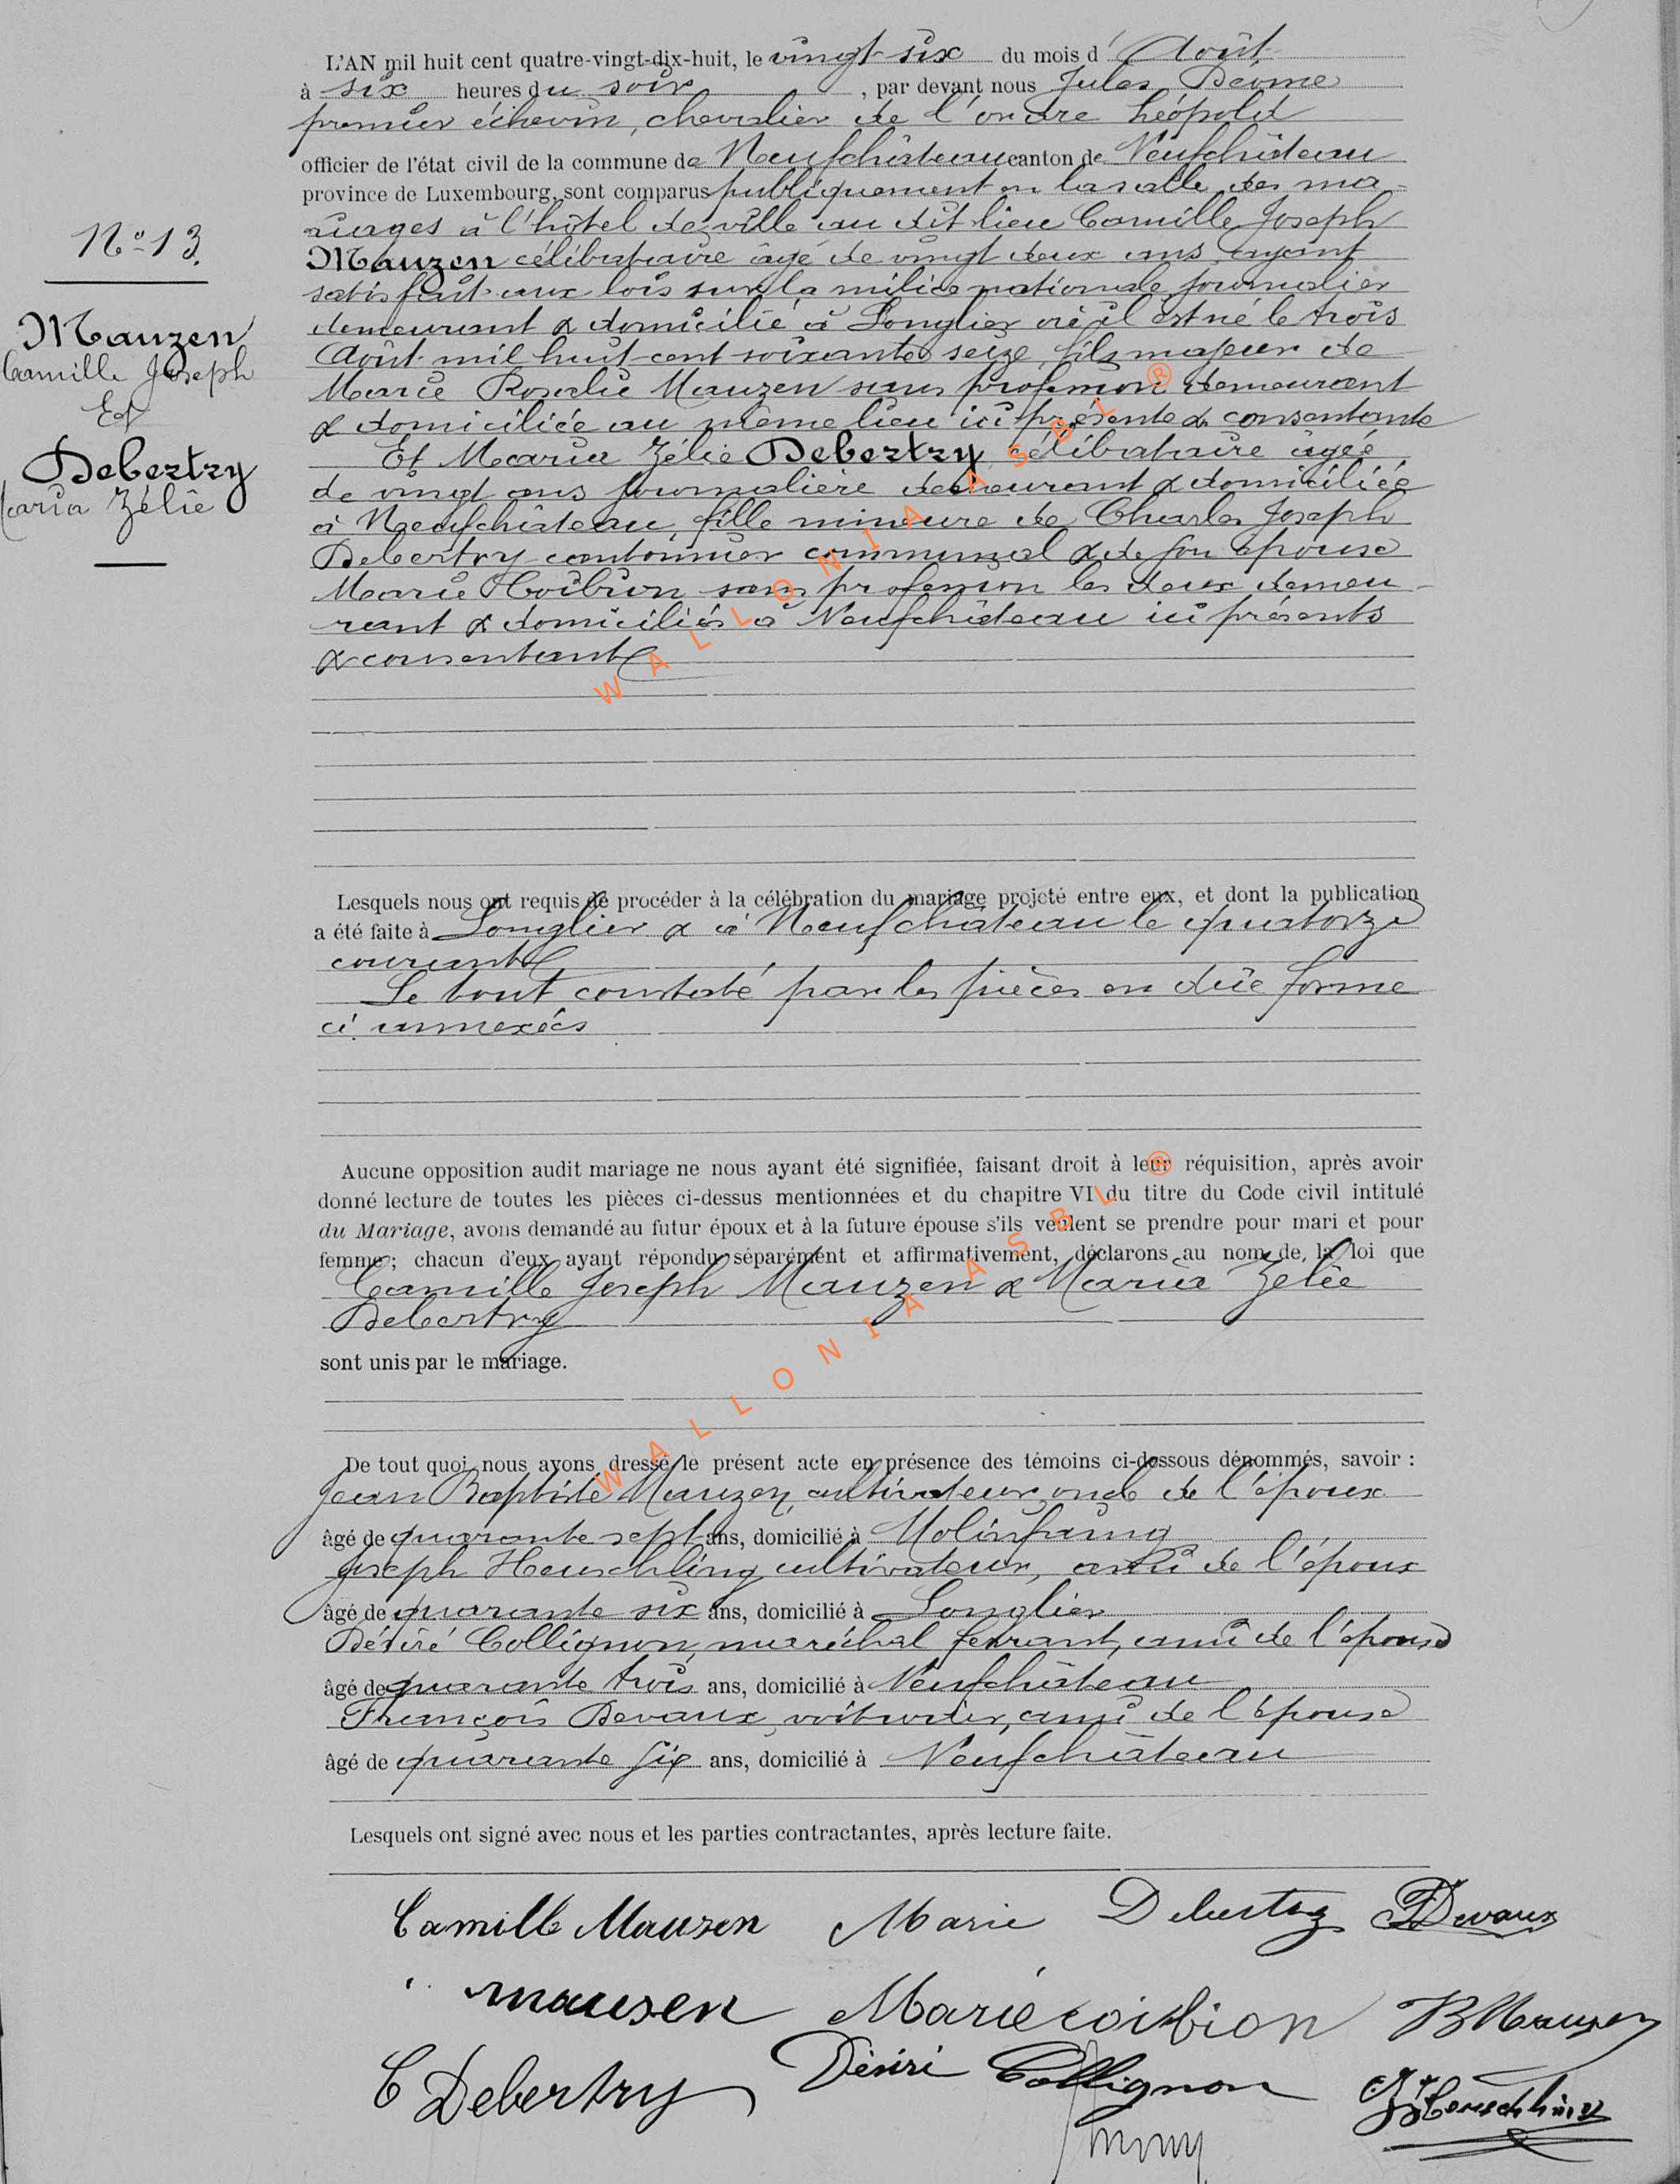 L'AN mil huit cent quatre-vingt-dix-huit, le vingt-six du mois d'Août
à six heures du soir, par devant nous Jules
premier échevin, chevalier de l'ordre Léopold
officier de l'état civil de la commune de Neufchâteau canton de Neufchâteau
province de Luxembourg, sont comparus publiquement en la salle des ma-
riages à l'hôtel de ville au dit lieu Camille Joseph
Mauzen célibataire âgé de vingt deux ans ayant
satisfait aux lois sur la milice nationale, journalier
demeurant & domicilié à Longlier où il est né le trois
Août mil huit cent soixante seize, fils majeur de
Marie Rosalie Mauzen sans profession demeurant
& domiciliée au même lieu ici présente & consentante
Et Maria Zélie Debertry célibataire âgée
de vingt ans journalière demeurant & domiciliée
à Neufchâteau, fille mineure de Charles Joseph
Debertry cantonnier communal & de son épouse
Marie Coibion sans profession les deux demeu-
rant & domiciliés à Neufchâteau ici présents
& consentants
N° 13.
Mauzen
Camille Joseph
Et
Debertry
Maria Zélie
Lesquels nous ont requis de procéder à la célébration du mariage projeté entre eux, et dont la publication
a été faite à Longlier & à Neufchâteau le quatorze
courant
Le tout constaté par les pièces en dûe forme
ci annexées
Aucune opposition audit mariage ne nous ayant été signifiée, faisant droit à leur réquisition, après avoir
donné lecture de toutes les pièces ci-dessus mentionnées et du chapitre VI du titre du Code civil intitulé
du Mariage, avons demandé au futur époux et à la future épouse s'ils veulent se prendre pour mari et pour
femme ; chacun d'eux ayant répondu séparément et affirmativement, déclarons au nom de la loi que
Camille Joseph Mauzen & Maria Zélie
Debertry
sont unis par le mariage.
De tout quoi nous avons dressé le présent acte en présence des témoins ci-dessous dénommés, savoir :
Jean Baptiste Mauzen, cultivateur, oncle de l'époux
âgé de quarante sept ans, domicilié à Molinfaing
Joseph Heuschling cultivateur, ami de l'époux
âgé de quarante six ans, domicilié à Longlier
Désiré Collignon, maréchal ferrant, ami de l'épouse
âgé de quarante trois ans, domicilié à Neufchâteau
François Devaux voiturier, ami de l'épouse
âgé de quarante six ans, domicilié à Neufchâteau
Lesquels ont signé avec nous et les parties contractantes, après lecture faite.
Camille Mauzen Marie Debertry F Devaux
mausen Marie coibion JB Mauzen
C Debertry Désiré Collignon J Heuschling
WALLONIA ASBL ®
WALLONIA ASBL ®